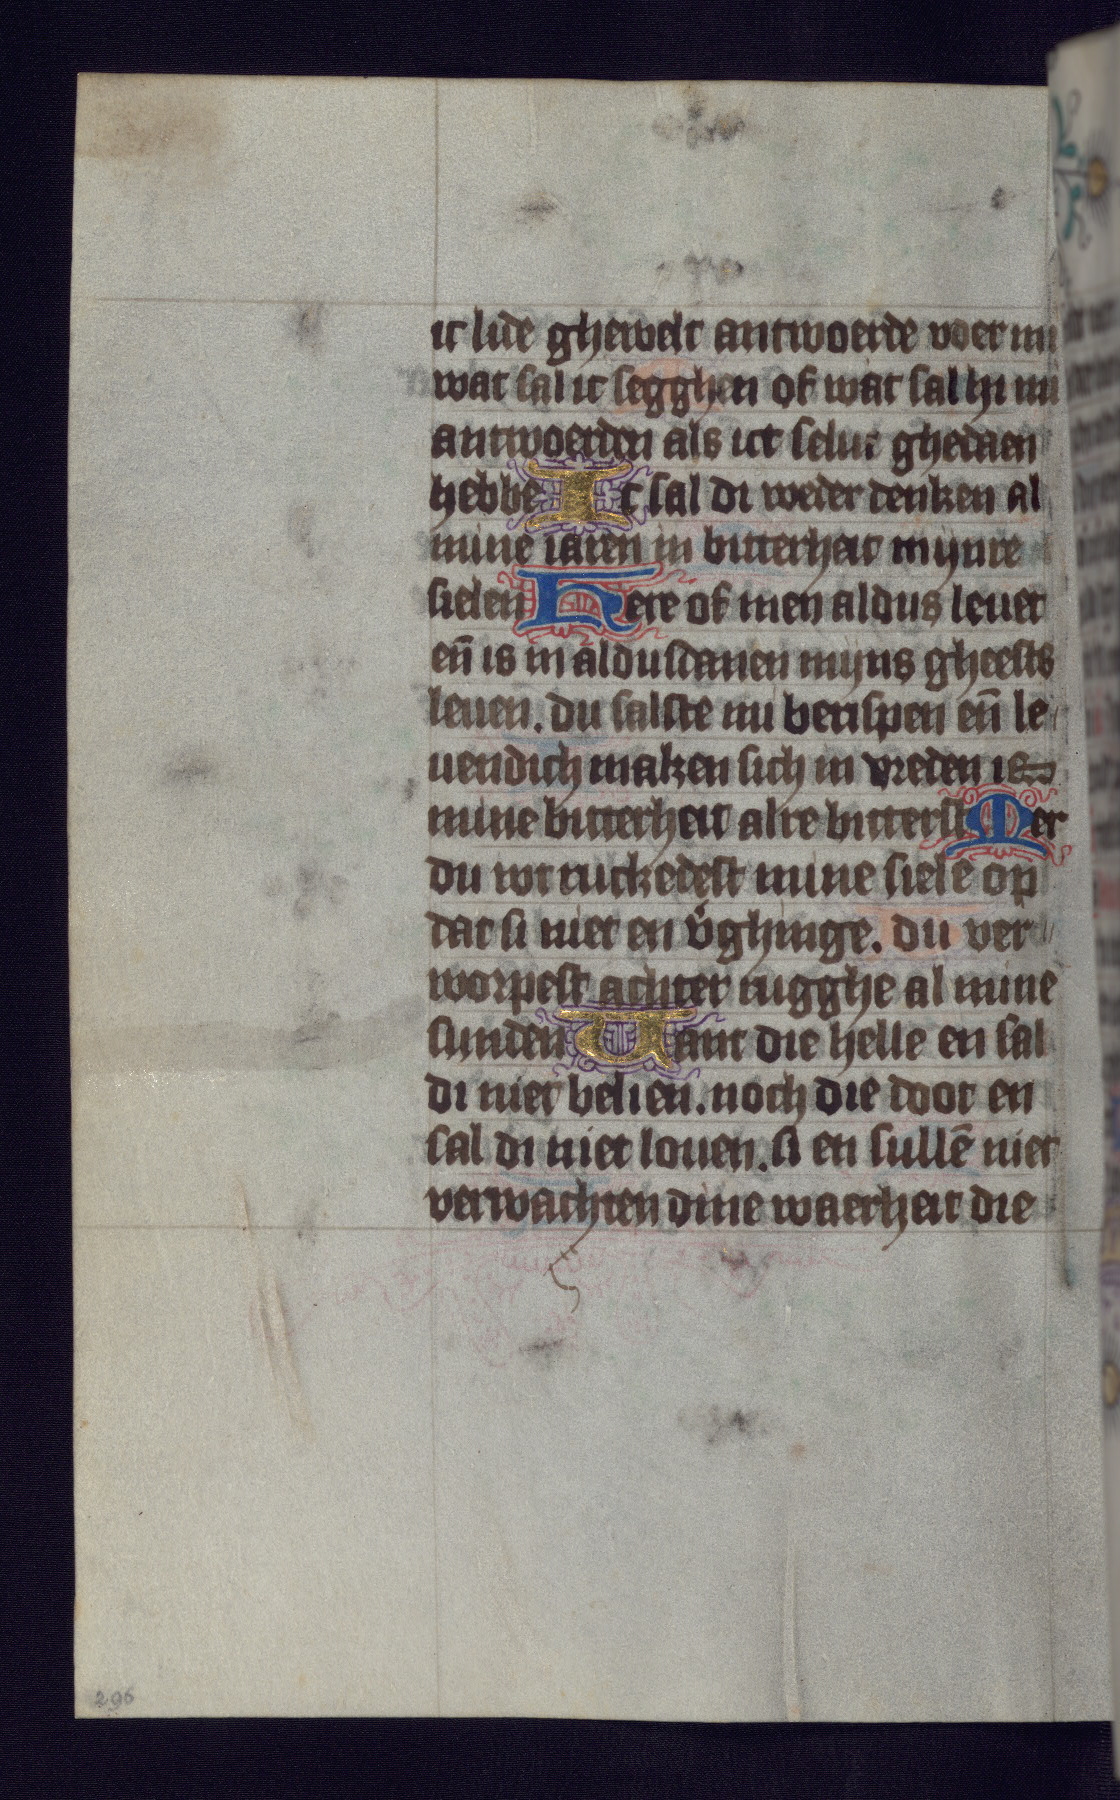 ic lide ghewelt antwoerde voer mi
wat sal ic segghen of wat sal hi mi
antwoerden als ict selue ghedaen
hebbe Ic sal di weder denken al
mine iaren in bitterheit mijnre
sielen Here of men aldus leuet
en̄ is in aldusdanen mijns gheests
leuen. du salste mi berispen en̄ le
uendich maken sich in vreden is
mine bitterheit alre bitterst Mer
du wtruckedest mine siele op
dat si niet en v͛ghinge. du ver
worpest achter rugghe al mine
sunden Want die helle en sal
di niet belien. noch die doot en
sal di niet louen. si en sullē niet
verwachten dine waerheit die
296